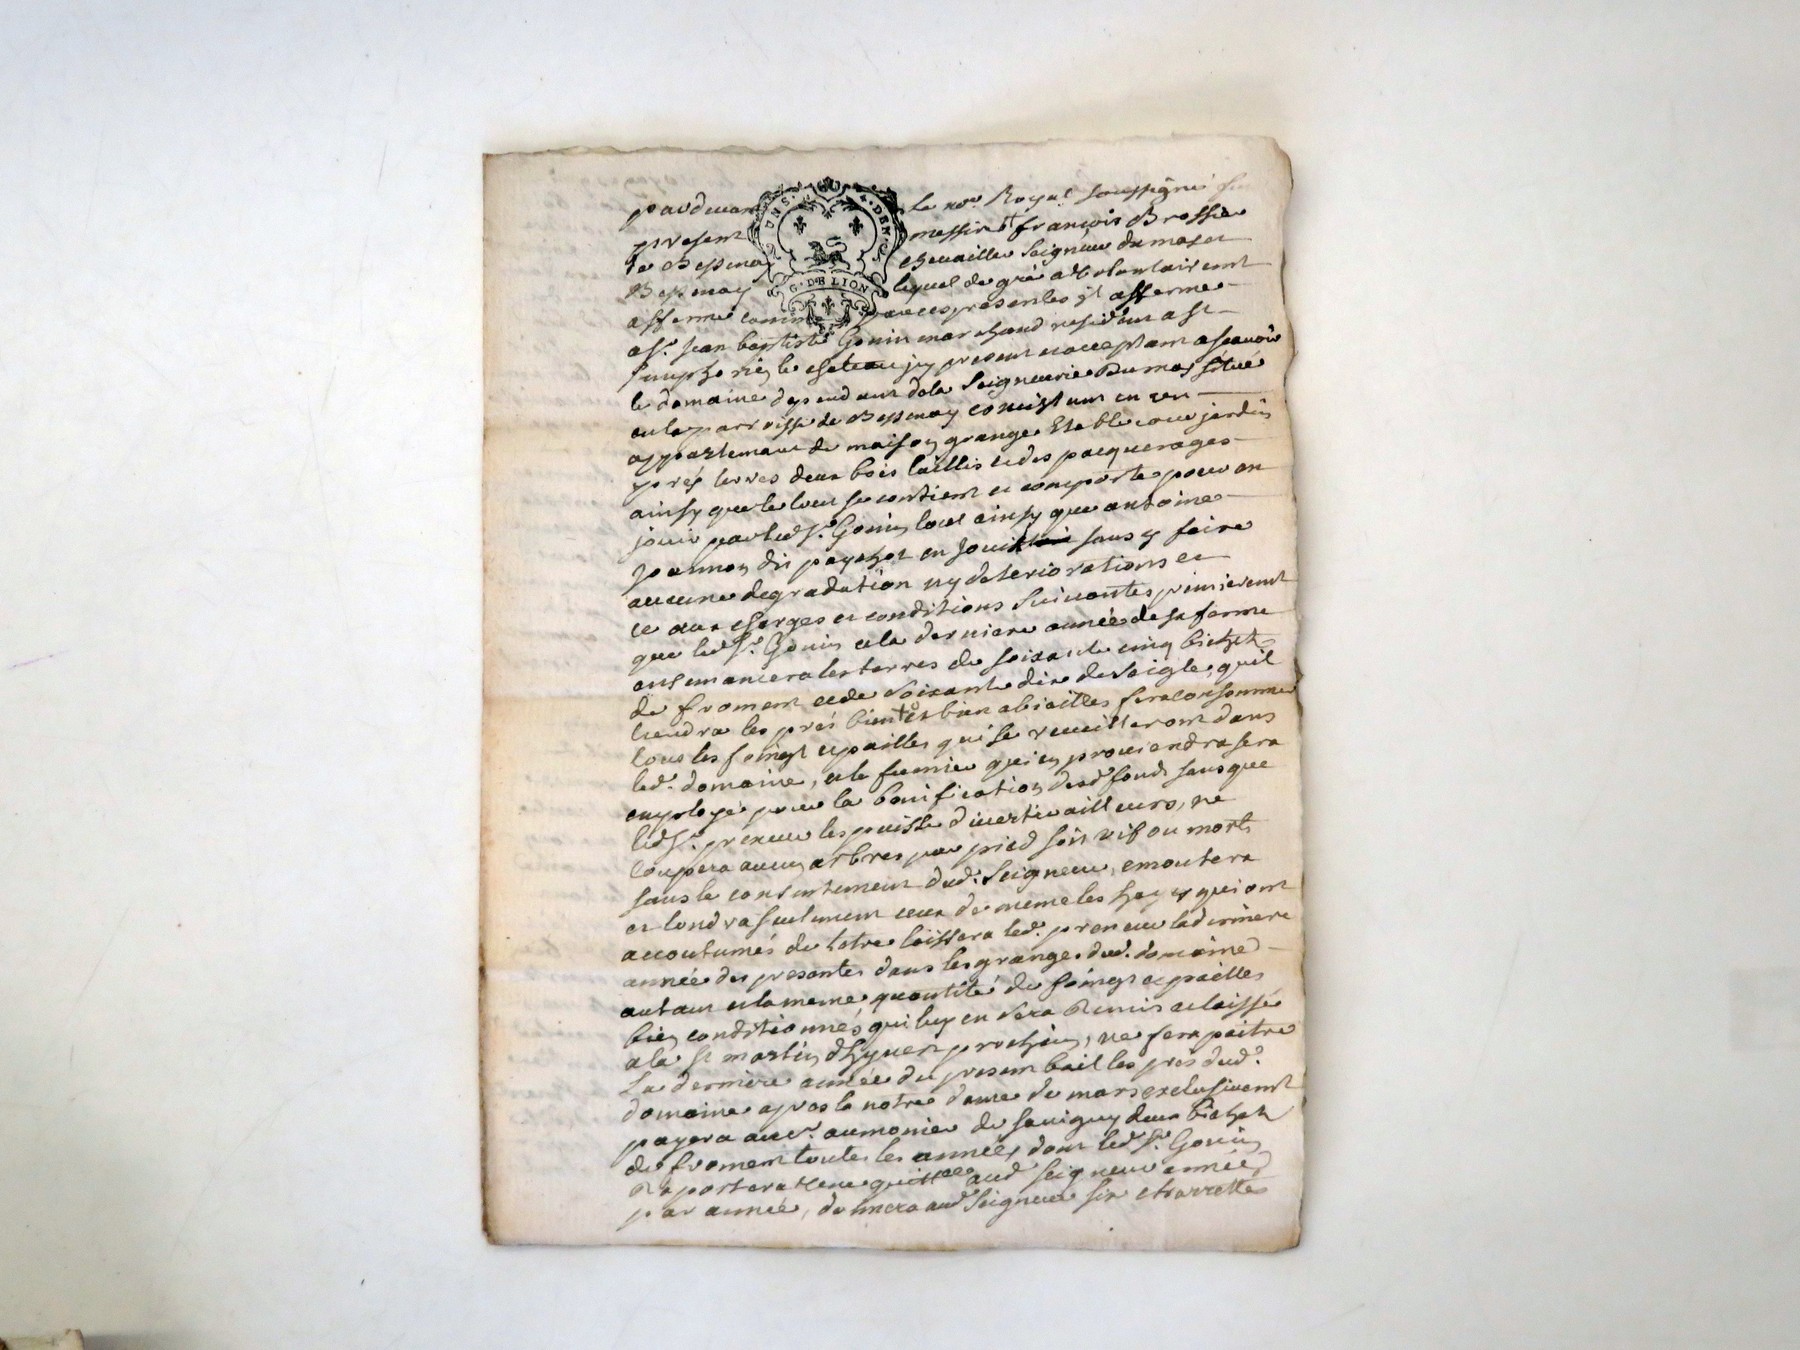 pardevant Le no.re Royal soussigné fut
present messire françois Brossier
de Bessenay chevaillier Seigneur du mas et
Bessenay lequel de gré et volontairement
afferme comme par ces presentes il afferme
a s.r Jean baptiste Gonin marchand residant a st
simphorien le chateau icy present et acceptant a scavoir
le domaine dependant de la Seigneurie Dumas situé
en la parroisse de Bessenay consistant en un
appartement de maison grange Etable cour jardin
prés terres deux bois taillis et des pacquerages
ainsy que le tout se contient et comporte pour en
jouir par led s.r Gonin tout ainsy que antoine
Joannon dit payechot en jouit sans y faire
aucune degradation ny deteriorations et
ce aux charges et conditions suivantes premierement
que led s.r Gonin a la derniere année de sa ferme
ensemancera les terres de soixante cinq bichets
de froment et de soixante dix de seigle, quil
tiendra les prés bien et bien abiellés fera consommer
tous les foings et pailles qui se recuilleront dans
led. domaine, et le fumier qui en proviendra sera
employé pour la bonification desd. fonds sans que
led s.r preneur les puisse divertir ailleurs, ne
coupera aucun arbres par pied soit vif ou morts
sans le consentement dud. Seigneur, emoutera
et tondra seulement ceux de meme les hayes qui ont
accoutumés de letre laissera led. preneur la derniere
année des presentes dans les granges dud. domaine
autant et la meme quantité de foings et pailles
bien conditionnés qui luy en sera Remis et laissé
a la st martin dhyver prochain, ne fera paitre
La derniere année du present bail les prés dud.
domaine apres la notre dame de mars exclusivement
payera au s.r aumonier de savigny deux bichets
de froment toutes les années dont led s.r Gonin
Raportera quittance aud seigneur année
par année, donnera aud Seigneur six
UNS. DEN
G. DE LION